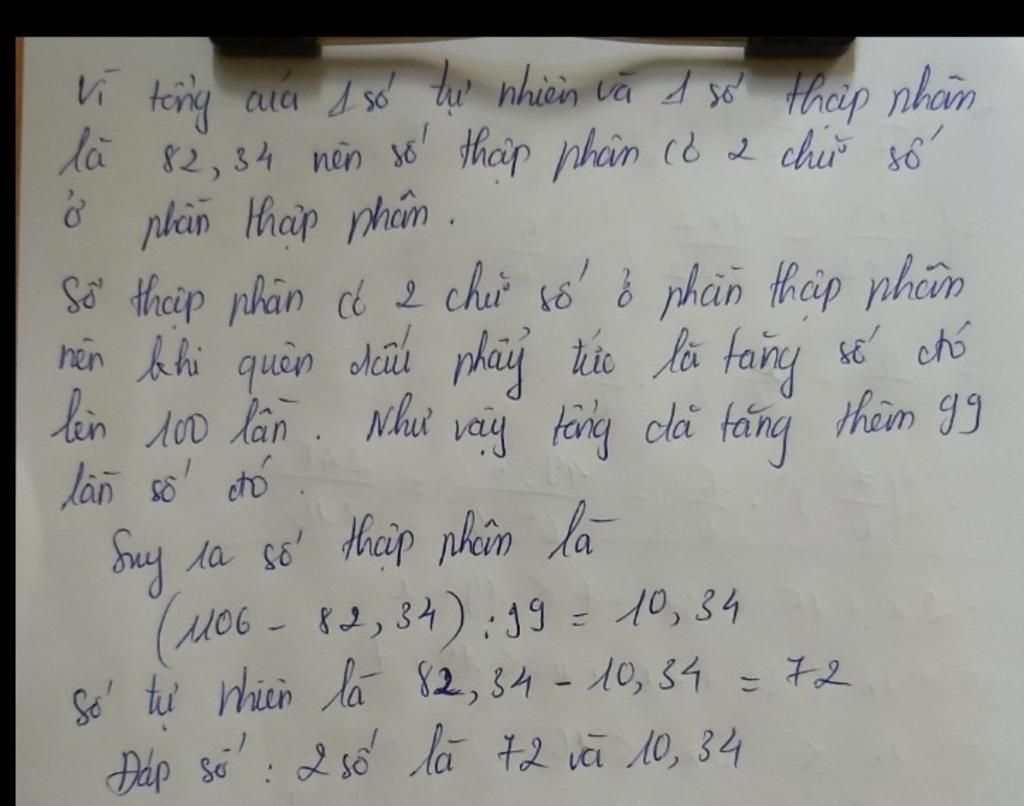 Vì tổng của 1 số tự nhiên và 1 số thập phân
là 82,34 nên số thập phân có 2 chữ số
ở phần thập phân.
Số thập phân có 2 chữ số ở phần thập phân
nên khi quên dấu phẩy tức là tăng số đó
lên 100 lần. Như vậy tổng đã tăng thêm 99
lần số đó.
Suy ra số thập phân là
(1106 - 82,34) : 99 = 10,34
Số tự nhiên là 82,34 - 10,34 = 72
Đáp số : 2 số là 72 và 10,34